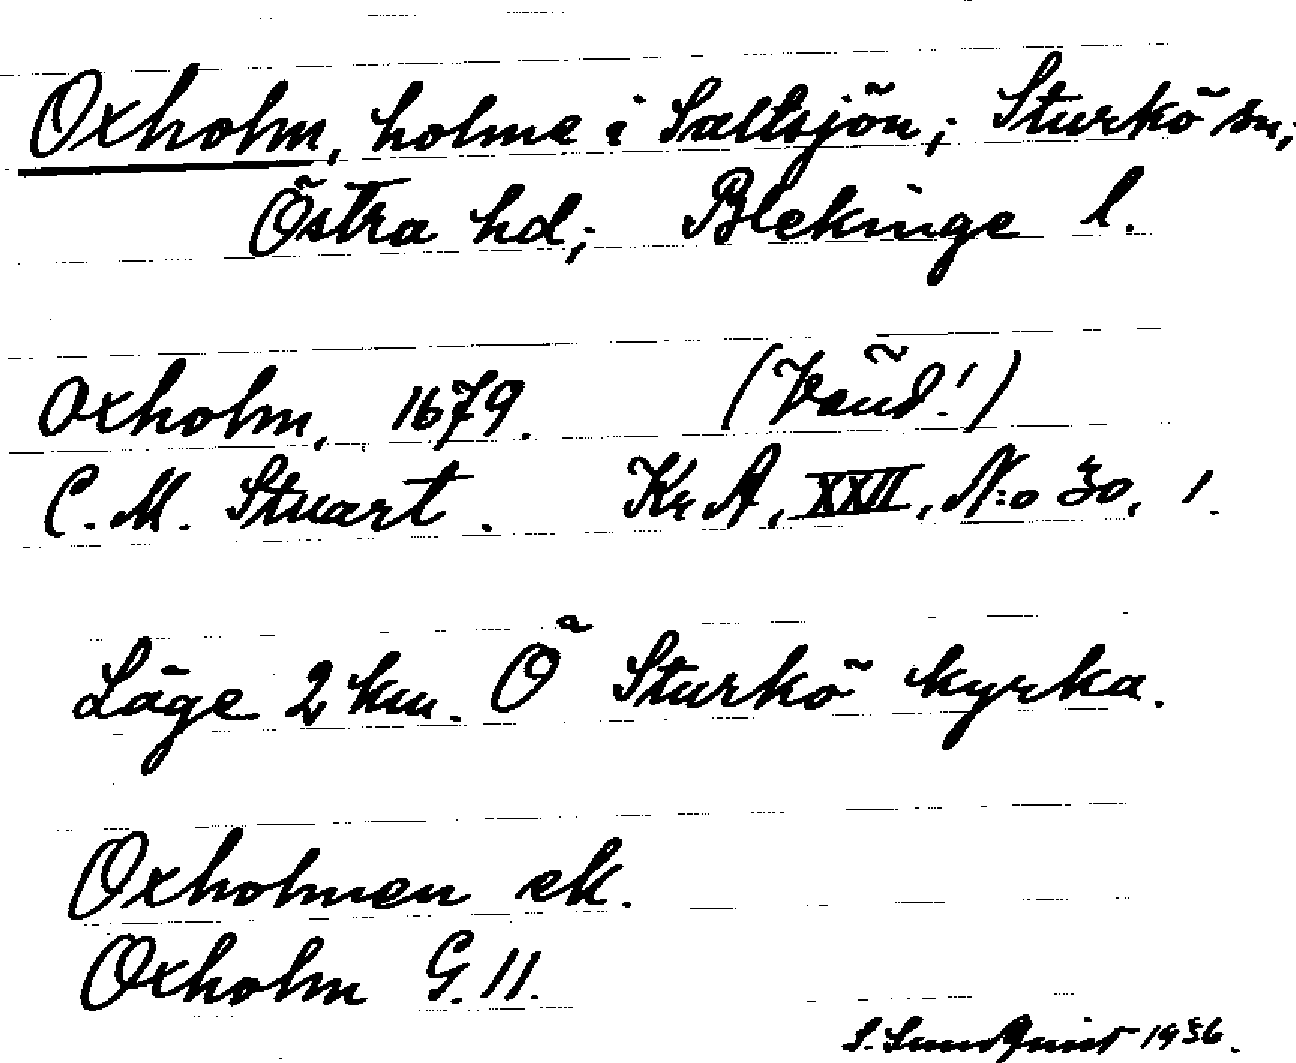 Oxholm, holme i Saltsjön; Sturkö sn;
Östra hd; Blekinge l.
Oxholm, 1679. (Vänd!)
C. M. Stuart. Kr A, XXII, N:o 30, 1.
Läge 2 km. Ö Sturkö kyrka.
Oxholmen ek.
Oxholm G. 11.
S. Sundquist 1936.